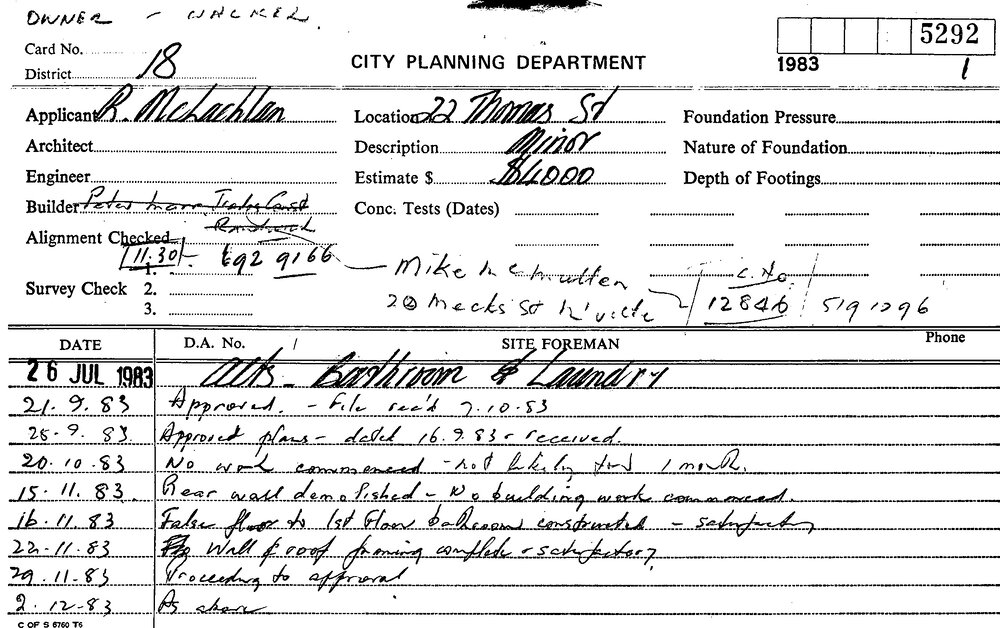 OWNER - WALKER.
Card No.
District 18
CITY PLANNING DEPARTMENT
5292
1983 1
Applicant R. McLachlan
Location 22 Thomas St
Foundation Pressure
Architect
Description Minor
Nature of Foundation
Engineer
Estimate $ $4000
Depth of Footings
Builder Peter
Conc. Tests (Dates)
Randwick
Alignment Checked
11.30 692 9166
Mike McMullen C. No
Survey Check 1.
2. 20 Meeks St K'ville 12846 5191296
3.
DATE D.A. No. 1 SITE FOREMAN Phone
26 JUL 1983 Alts - Bathroom & Laundry
21.9.83 Approved. - File rec'd 7.10.83
28.9.83. Approved plans - dated 16.9.83 - received.
20.10.83 No work commenced - not likely for 1 month.
15.11.83. Rear wall demolished - No building work commenced.
16.11.83 False floor to 1st Floor bathroom constructed - satisfactory
22.11.83 Wall & roof framing complete - satisfactory
29.11.83 Proceeding to approval
2.12.83 As above
C OF S 6760 T6